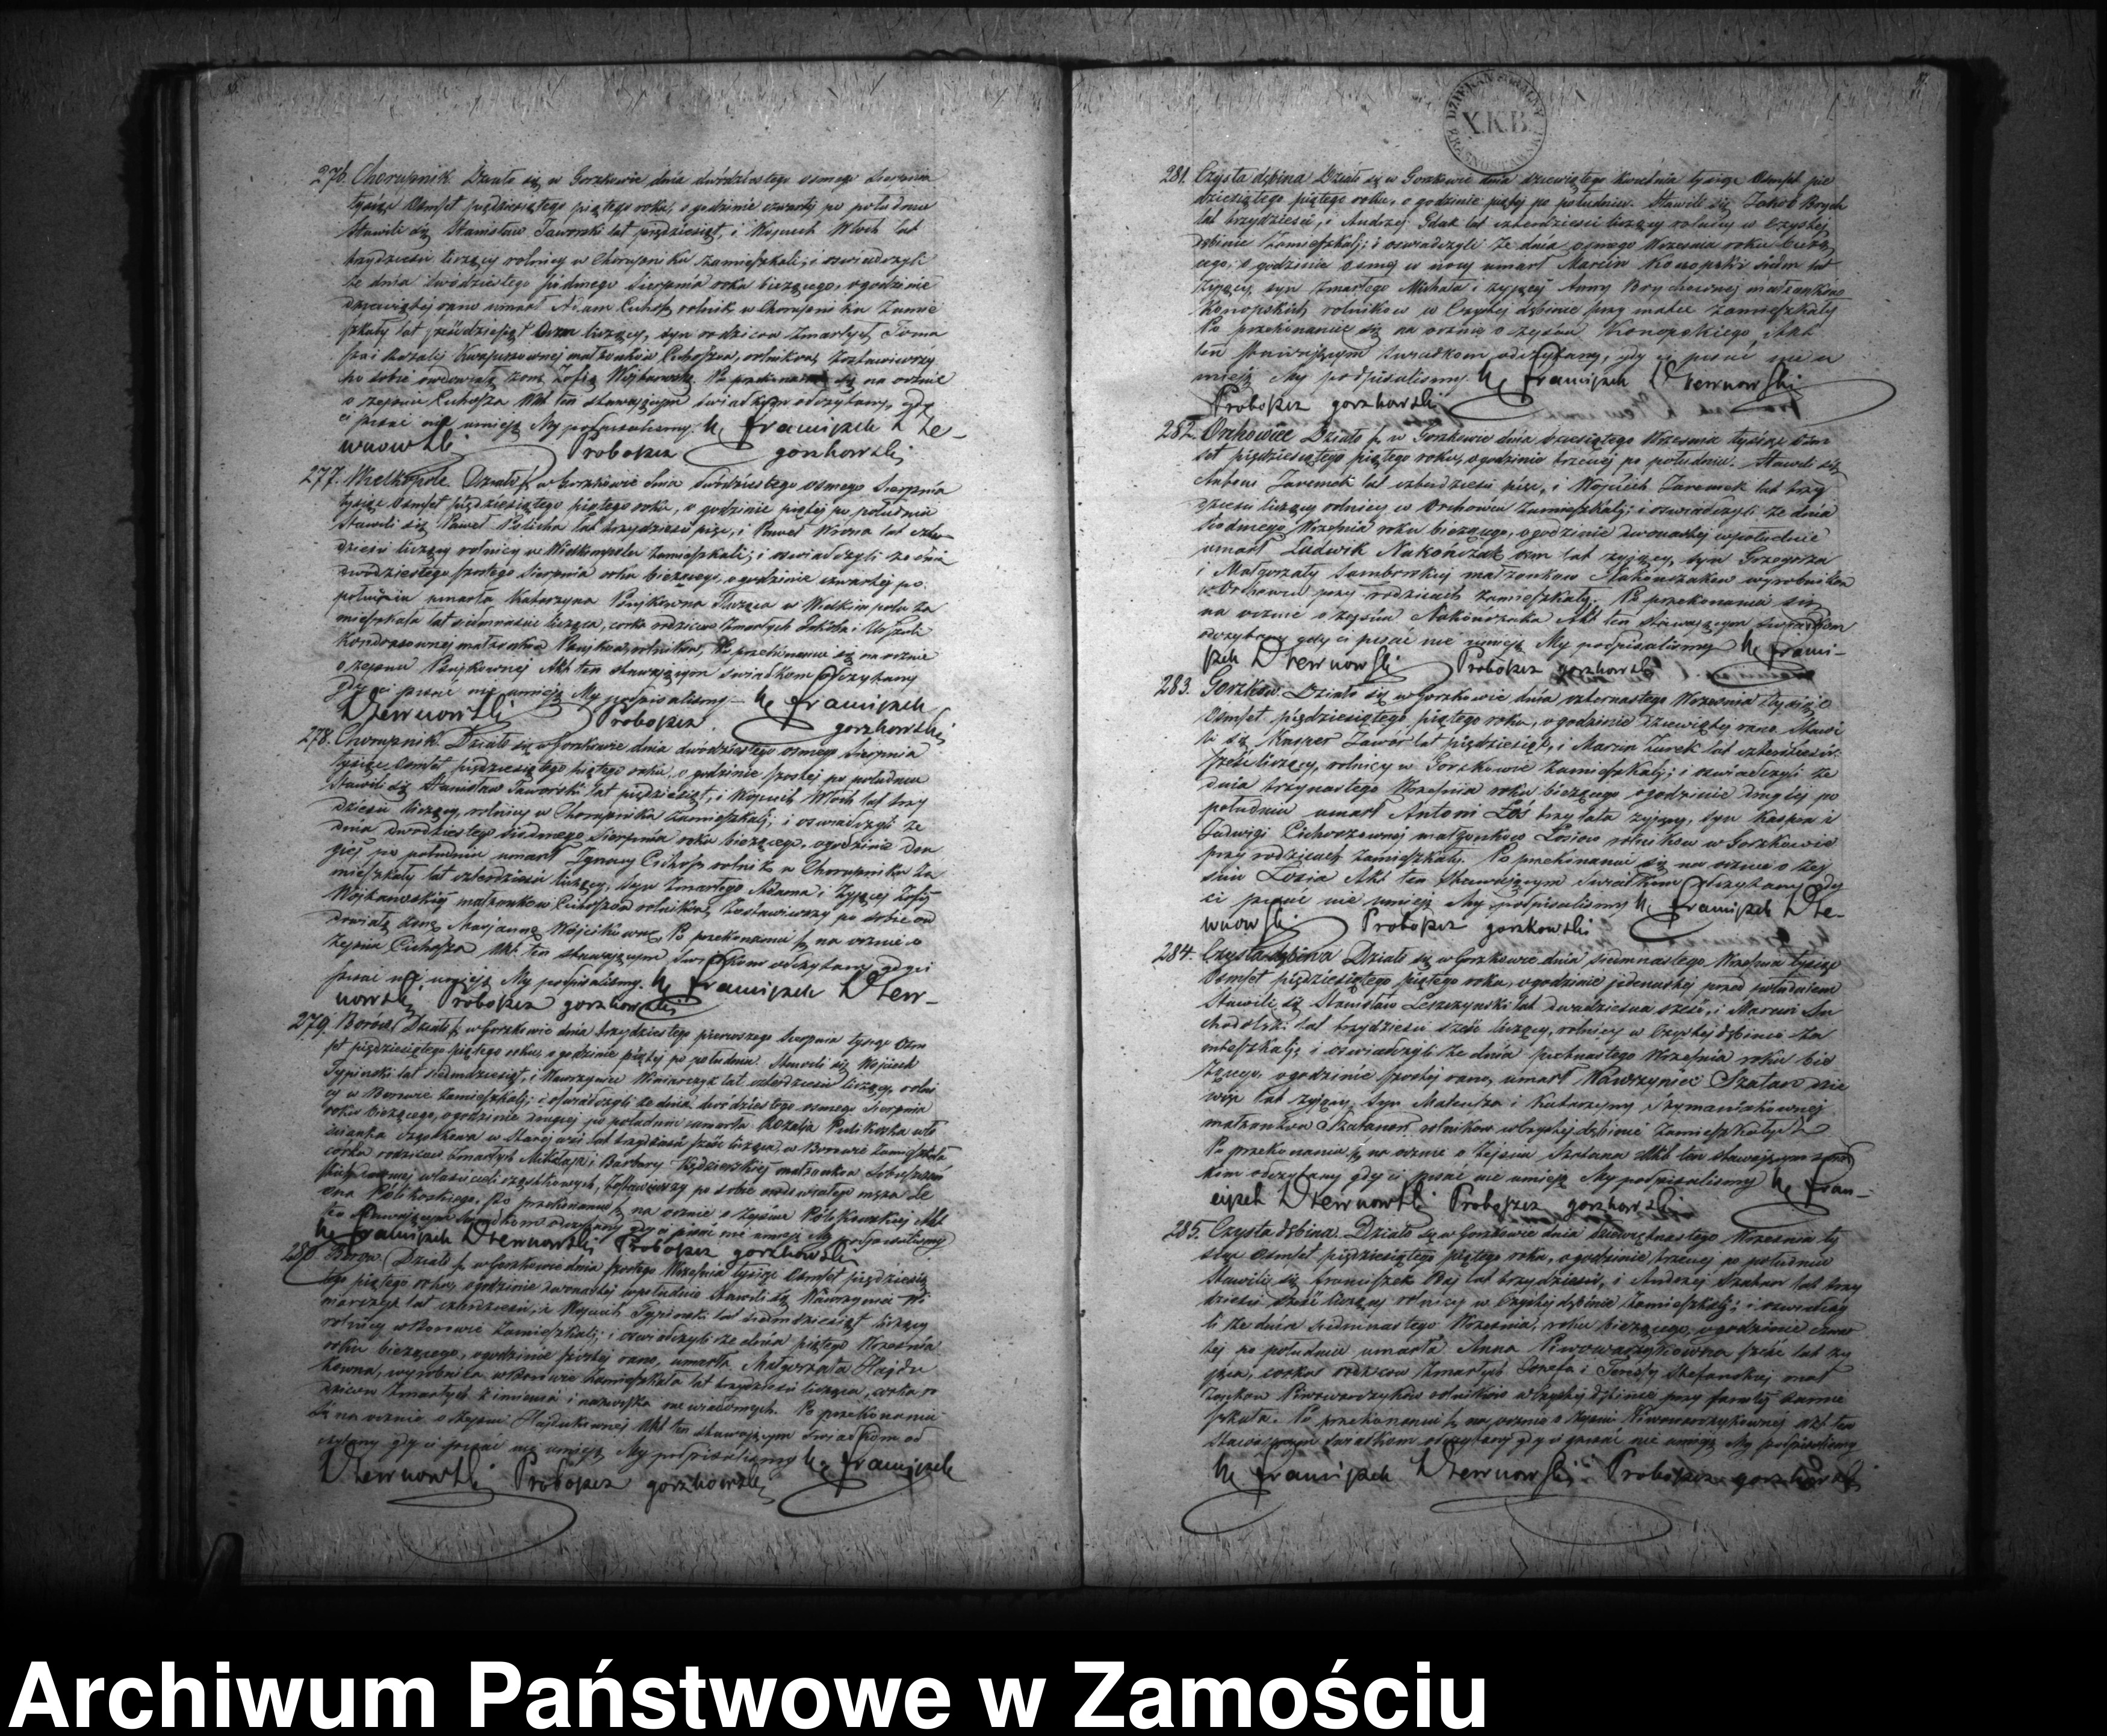 276. Chorupnik Działo się w Gorzkowie dnia dwódziestego osmego Sierpnia
tysiąc ośmset pięćdziesiątego piątego roku, o godzinie czwartej po południu
Stawili się Stanisław Jaworski lat pięćdziesiąt, i Wojciech Włoch lat
trzydzieści liczący rolnicy w Chorupniku zamieszkali; i oświadczyli
że dnia dwódziestego siódmego Sierpnia roku bieżącego, o godzinie
dziewiątej rano umarł Adam Cichosz rolnik w Chorupniku zamie
szkały lat sześćdziesiąt liczący, syn rodziców zmarłych Toma
sza i małżonków Cichoszów, rolników, Zostawiwszy
po sobie owdowiałą żonę Zofią Wójtkowską. Po przekonaniu się na ocznie
o zejściu Cichosza Akt ten stawającym świadkom odczytany, gdy
ci pisać nie umieją My podpisaliśmy. X. Franciszek Drze-
wnowski Proboszcz gorzkowski
277. Wielkopole. Działo się w Gorzkowie dnia dwódziestego osmego Sierpnia
tysiąc ośmset pięćdziesiątego piątego roku, o godzinie piątej po południu
Stawili się Paweł lat trzydzieści pięć, i Paweł Wrona lat czter-
dzieści liczący rolnicy w Wielkimpolu zamieszkali; i oświadczyli że dnia
dwódziestego szóstego Sierpnia roku bieżącego, o godzinie czwartej po
południu umarła Katarzyna służąca w Wielkim polu za
mieszkała lat siedmnaście licząca, córka rodziców zmarłych Jakóba i Urszuli
małżonków rolników, Po przekonaniu się na ocznie
o zejściu Akt ten stawającym świadkom odczytany
gdy ci pisać nie umieją My podpisaliśmy — X. Franciszek
Drzewnowski Proboszcz gorzkowski
278. Chorupnik. Działo się w Gorzkowie dnia dwódziestego osmego Sierpnia
tysiąc ośmset pięćdziesiątego piątego roku, o godzinie szóstej po południu
Stawili się Stanisław Jaworski lat pięćdziesiąt, i Wojciech Włoch lat trzy
dzieści liczący, rolnicy w Chorupniku zamieszkali, i oświadczyli że
dnia dwódziestego siódmego Sierpnia roku bieżącego, o godzinie dru
giej po południu umarł Ignacy Cichosz rolnik w Chorupniku za
mieszkały lat czterdzieści liczący, syn zmarłego Adama i żyjącej Zofij
Wójtkowskiej małżonków Cichoszów rolników, Zostawiwszy po sobie ow
dowiałą żonę Maryannę Wójcikównę, Po przekonaniu się na ocznie o
zejściu Cichosza Akt ten stawającym świadkom odczytany gdy ci
pisać nie umieją My podpisaliśmy. X. Franciszek Drzew-
nowski Proboszcz gorzkowski
279. Borów. Działo się w Gorzkowie dnia trzydziestego pierwszego Sierpnia tysiąc ośm
set pięćdziesiątego piątego roku, o godzinie piątej po południu. Stawili się Wojciech
lat siedmdziesiąt, i Wawrzyniec Winiarczyk lat czterdzieści liczący, rolni
cy w Borowie zamieszkali; i oświadczyli że dnia dwódziestego osmego Sierpnia
roku bieżącego, o godzinie drugiej po południu umarła Rozalja
w Starej wsi lat trzydzieści sześć licząca, w Borowie zamieszkała
córka rodziców zmarłych Mikołaja i Barbary małżonków
właścicieli cząstkowych, Zostawiwszy po sobie owdowiałego męża Le
ona Po przekonaniu się na ocznie o zejściu Akt
ten stawającym świadkom odczytany gdy ci pisać nie umieją My podpisaliśmy
X. Franciszek Drzewnowski Proboszcz gorzkowski
280. Borów. Działo się w Gorzkowie dnia szóstego Września tysiąc ośmset pięćdziesią
tego piątego roku, o godzinie dwunastej w południe Stawili się Wawrzyniec Wi
niarczyk lat czterdzieści, i Wojciech lat siedmdziesiąt liczący
rolnicy w Borowie zamieszkali; i oświadczyli że dnia piątego Września
roku bieżącego, o godzinie szóstej rano, umarła Małgorzata Hajdu
kówna, wyrobnica w Borowie zamieszkała lat trzydzieści licząca, córka ro
dziców zmarłych z imienia i nazwiska nie wiadomych. Po przekonaniu
się na ocznie o zejściu Hajdukównej Akt ten stawającym świadkom od
czytany gdy ci pisać nie umieją My podpisaliśmy X. Franciszek
Drzewnowski Proboszcz gorzkowski
DZIEKAN
X.K.B.
KRASNOSTAWSKI
281. Czysta dębina Działo się w Gorzkowie dnia dziewiątego Września tysiąc ośmset pię
dziesiątego piątego roku, o godzinie piątej po południu. Stawili się Jakób Brych
lat trzydzieści, i Andrzej Gdak lat czterdzieści liczący rolnicy w Czystej
dębinie zamieszkali; i oświadczyli że dnia ósmego Września roku bieżą
cego, o godzinie osmej w nocy umarł Marcin Konopski siedm lat
żyjący, syn zmarłego Michała i żyjącej Anny Brychównej małżonków
Konopskich rolników w Czystej dębinie przy matce zamieszkały
Po przekonaniu się na ocznie o zejściu Konopskiego, Akt
ten stawającym świadkom odczytany, gdy ci pisać nie u
mieją My podpisaliśmy. X. Franciszek Drzewnowski
Proboszcz gorzkowski
282. Orchowiec Działo się w Gorzkowie dnia dziesiątego Września tysiąc ośm
set pięćdziesiątego piątego roku, o godzinie trzeciej po południu. Stawili się
Antoni Jaremek lat czterdzieści pięć, i Wojciech Jaremek lat trzy
dzieści liczący rolnicy w Orchowcu zamieszkali; i oświadczyli że dnia
siódmego Września roku bieżącego, o godzinie dwunastej w południe
umarł Ludwik Nakończak rok lat żyjący, syn Grzegorza
i Małgorzaty Samborskiej małżonków Nakończaków wyrobników
w Orchowcu przy rodzicach zamieszkały. Po przekonaniu się
na ocznie o zejściu Nakończaka Akt ten stawającym świadkom
odczytany gdy ci pisać nie umieją My podpisaliśmy X. Franci-
szek Drzewnowski Proboszcz gorzkowski
283. Gorzków. Działo się w Gorzkowie dnia czternastego Września tysiąc
ośmset pięćdziesiątego piątego roku, o godzinie dziewiątej rano. Stawi
li się Kasper Jawor lat pięćdziesiąt, i Marcin Żurek lat czterdzieści
sześć liczący, rolnicy w Gorzkowie zamieszkali; i oświadczyli że
dnia trzynastego Września roku bieżącego o godzinie drugiej po
południu umarł Antoni Łoś trzy lata żyjący, syn Kaspra i
Jadwigi Cichoszównej małżonków Łosiów rolników w Gorzkowie
przy rodzicach zamieszkały. Po przekonaniu się na ocznie o zej
ściu Łosia Akt ten stawającym świadkom odczytany gdy
ci pisać nie umieją My podpisaliśmy X. Franciszek Drze-
wnowski Proboszcz gorzkowski
284. Czysta dębina Działo się w Gorzkowie dnia siedmnastego Września tysiąc
ośmset pięćdziesiątego piątego roku, o godzinie jedenastej przed południem
Stawili się Stanisław Leszczyński lat dwadzieścia sześć, i Marcin Su
chodolski lat trzydzieści sześć liczący, rolnicy w Czystej dębinie za
mieszkali; i oświadczyli że dnia piętnastego Września roku bie
żącego, o godzinie szóstej rano, umarł Wawrzyniec Szatan dzie
więć lat żyjący, syn Mateusza i Katarzyny Szymaniakównej
małżonków Szatanów rolników w Czystej dębinie zamieszkałych
Po przekonaniu się na ocznie o zejściu Szatana Akt ten stawającym świad
kom odczytany gdy ci pisać nie umieją My podpisaliśmy X. Fran-
ciszek Drzewnowski Proboszcz gorzkowski
285. Czysta dębina. Działo się w Gorzkowie dnia dziewiętnastego Września ty
siąc ośmset pięćdziesiątego piątego roku, o godzinie trzeciej po południu
Stawili się Franciszek Baj lat trzydzieści, i Andrzej Szatan lat trzy
dzieści sześć liczący rolnicy w Czystej dębinie zamieszkali; i oświadczy
li że dnia siedmnastego Września, roku bieżącego, o godzinie czwar
tej po południu umarła Anna Piwowarzykówna sześć lat ży
jąca, córka rodziców zmarłych Józefa i Teresy Stefańskiej mał
żonków Piwowarzyków rolników w Czystej dębinie przy familij zamie
szkała. Po przekonaniu się na ocznie o zejściu Piwowarzykównej Akt ten
stawającym świadkom odczytany gdy ci pisać nie umieją My podpisaliśmy
X. Franciszek Drzewnowski Proboszcz gorzkowski
Archiwum Państwowe w Zamościu